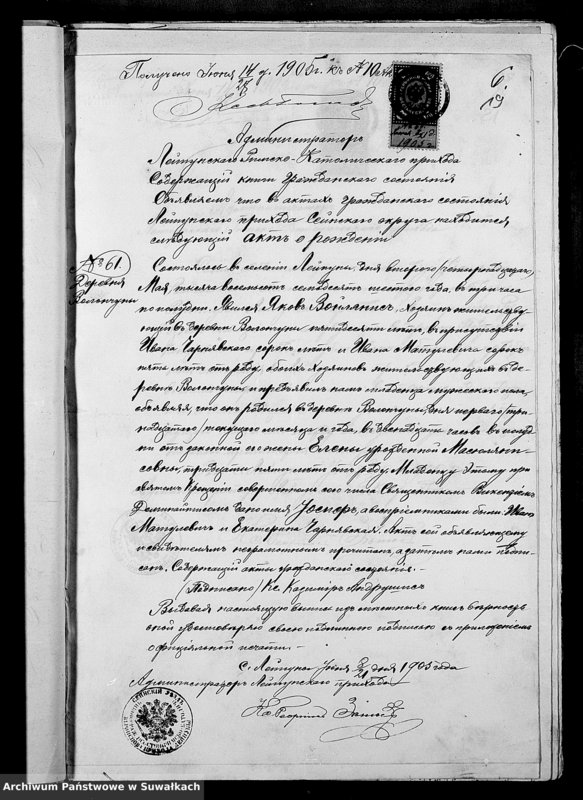 Получено Июня 14 д. 1905 г. къ № 10
6
19
1905 г.
Администраторъ
Лейпунскаго Римско-Католическаго прихода
Содержащій книги Гражданскаго состоянія
Объявляемъ что въ актахъ гражданскаго состоянія
Лейпунскаго прихода Сейнскаго округа находится
слѣдующій актъ о рожденіи
№ 61.
Деревня
Волончуны
Состоялось въ селеніи Лейпуны, дня второго/четырнадцатаго/
Мая, тысяча восемьсотъ семьдесятъ шестого года, въ три часа
по полудни. Явился Яковъ, Хозяинъ жительствую-
щій въ деревни Волончуны пятидесяти лѣтъ, въ присутствіи
Ивана Чарнявскаго сорокъ лѣтъ и Ивана Матулевича сорокъ
пять лѣтъ отъ роду, обоихъ хозяиновъ жительствующихъ въ де-
ревни Волончуны, и предъявилъ намъ младенца мужескаго пола,
объявляя, что онъ родился въ деревни Волончуны, дня перваго/три-
надцатаго/текущаго мѣсяца и года, въ двенадцать часовъ въ полуд-
ни отъ законной его жены Елены урожденной
тридцати пяти лѣтъ отъ роду. Младенцу этому при
святомъ Крещеніи совершенномъ сего числа Священникомъ
дано имя Іосифъ, а воспріемниками были Иванъ
Матулевичъ и Екатерина Чарнявская. Актъ сей объявляющему
и свидѣтелямъ неграмотнымъ прочитанъ, а затѣмъ нами подпи-
санъ. Содержащій акты гражданскаго состоянія.-
/Подписано/ Кс. Казиміръ Андрушисъ
Выдавая настоящую выпись изъ книгъ вѣрность
оной удостовѣряю своею подписью съ приложеніемъ
официяльной печати.-
С. Лейпуны Іюня дня 1905 года
Администраторъ Лейпунскаго прихода
Кс. Георгій
Archiwum Państwowe w Suwałkach